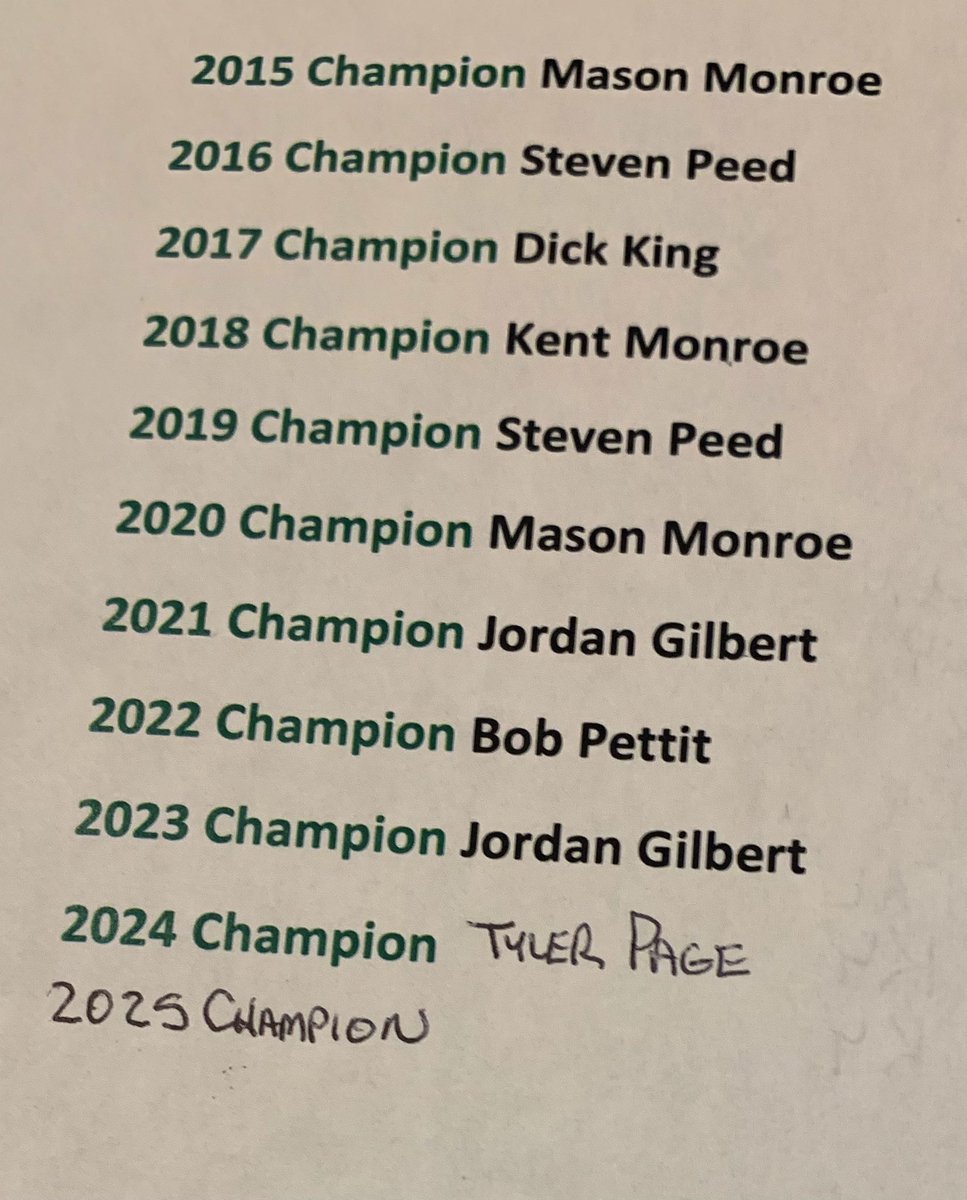 2015 Champion Mason Monroe
2016 Champion Steven Peed
2017 Champion Dick King
2018 Champion Kent Monroe
2019 Champion Steven Peed
2020 Champion Mason Monroe
2021 Champion Jordan Gilbert
2022 Champion Bob Pettit
2023 Champion Jordan Gilbert
2024 Champion TYLER PAGE
2025 CHAMPION